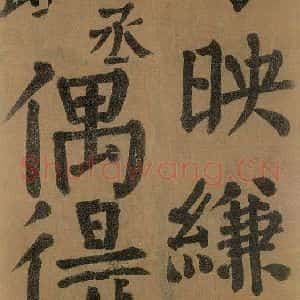 映縑
丞
偶得
Shufawang.CN